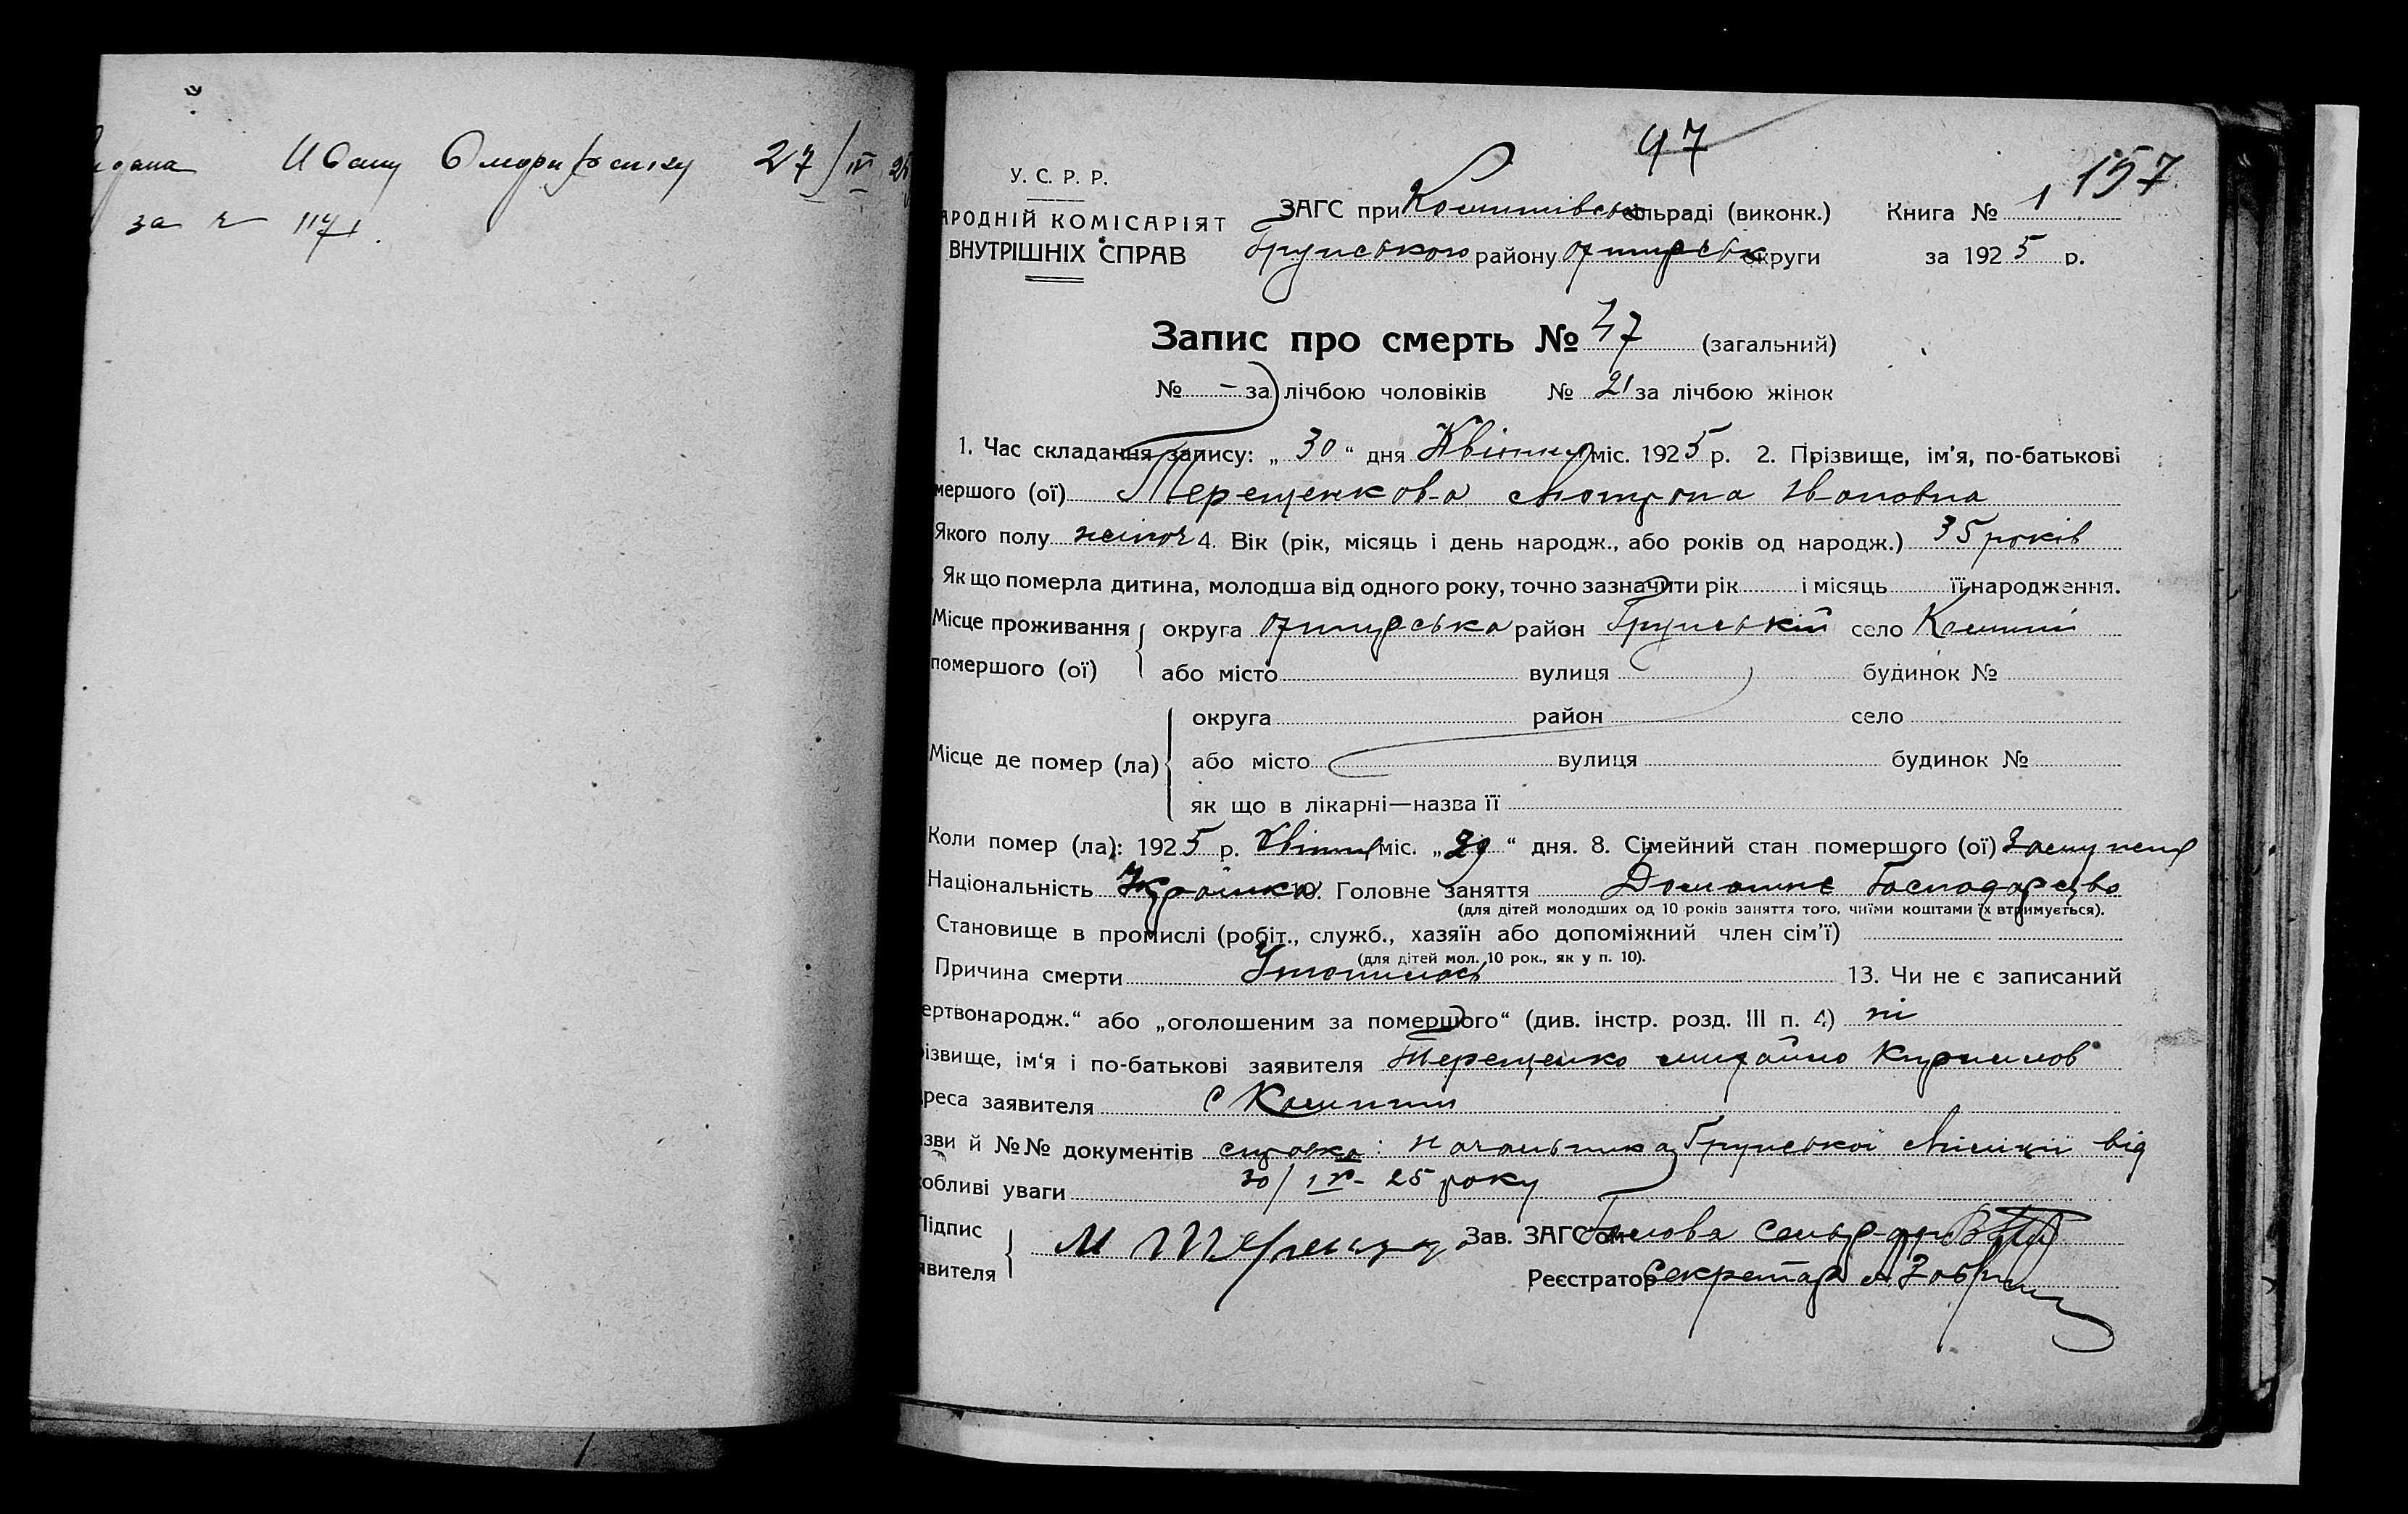 Ивану 27/IV 25
за ч 1171.
97
157
У. С. Р. Р.
АРОДНІЙ КОМІСАРІЯТ
ВНУТРІШНІХ СПРАВ
ЗАГС при Комишівськ сільраді (виконк.) Книга № 1
Грунського району Охтирськ округи за 1925 р.
Запис про смерть № 47 (загальний)
№ – за лічбою чоловіків № 21 за лічбою жінок
1. Час складання запису: „ 30 “ дня Квітня міс. 1925 р. 2. Прізвище, ім’я, по-батькові
мершого (ої) Терещенкова Мотрона Ивановна
Якого полу жіноч 4. Вік (рік, місяць і день народж., або років од народж.) 35 років
Як що померла дитина, молодша від одного року, точно зазначити рік і місяць її народження.
Місце проживання округа Охтирська район Грунській село Комиші
помершого (ої) або місто вулиця будинок №
округа район село
Місце де помер (ла) або місто вулиця будинок №
як що в лікарні—назва її
Коли помер (ла): 1925 р. Квітня міс. „ 29 “ дня. 8. Сімейний стан помершого (ої) Замужня
Національність Українка 10. Головне заняття Домашнє Господарство
(для дітей молодших од 10 років заняття того, чиїми коштами їх втримується).
Становище в промислі (робіт., служб., хазяїн або допоміжний член сім’ї)
(для дітей мол. 10 рок., як у п. 10).
Причина смерти Утопилась 13. Чи не є записаний
ертвонародж.“ або „оголошеним за помершого“ (див. інстр. розд. III п. 4) ні
ізвище, ім‘я і по-батькові заявителя Терещенко михайло Кирилов
реса заявителя с Комиши
зви й №№ документів справка: начальника Грунської Міліції від
обливі уваги 30/IV- 25 року
Підпис
явителя
М Терещенко
Зав. ЗАГС'ом Голова сельради
Реєстратор Секретар